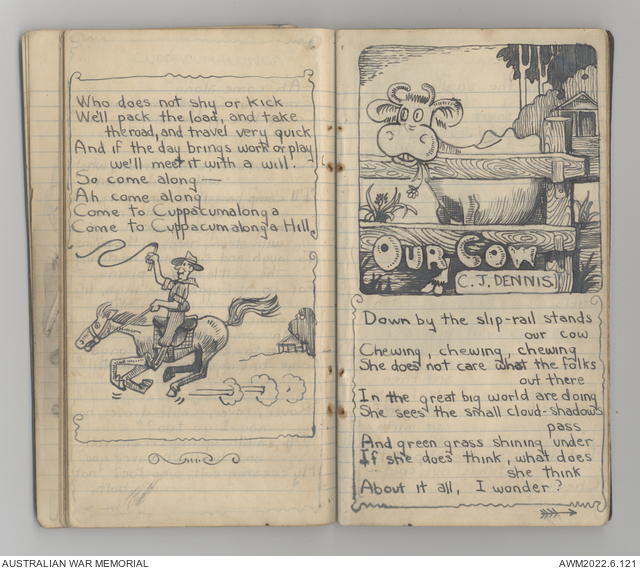 Who does not shy or kick
We'll pack the load, and take
the road, and travel very quick
And if the day brings work or play
we'll meet it with a will.
So come along —
Ah come along
Come to Cuppacumalonga
Come to Cuppacumalonga Hill.
OUR COW
C.J. DENNIS
Down by the slip-rail stands
our cow
Chewing, chewing, chewing
She does not care what the folks
out there
In the great big world are doing
She sees the small cloud-shadows
pass
And green grass shining under
If she does think, what does
she think
About it all, I wonder?
AUSTRALIAN WAR MEMORIAL
AWM2022.6.121